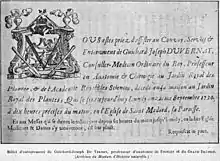 VOUS estes priez d'assister au Convoy, Service &
Enterrement de Guichard Joseph DUVERNAY,
Conseiller Medecin Ordinaire du Roy, Professeur
en Anatomie & Chirurgie au Jardin Royal des
Plantes, & de l'Academie des Sciences, décedé en sa maison au Jardin
Royal des Plantes; Qui se fera aujourd'huy 12 Septembre 1730,
à dix heures précises du matin, en l'Eglise de Saint Medard, sa Paroisse,
Messieurs & Dames s'y trouveront, s'il leur plaist.
Requiescat in pace.
Billet d'enterrement de Guichard-Joseph Du Verney, professeur d'anatomie de Bossuet et du Grand Dauphin.
(Archives du Muséum d'Histoire naturelle.)